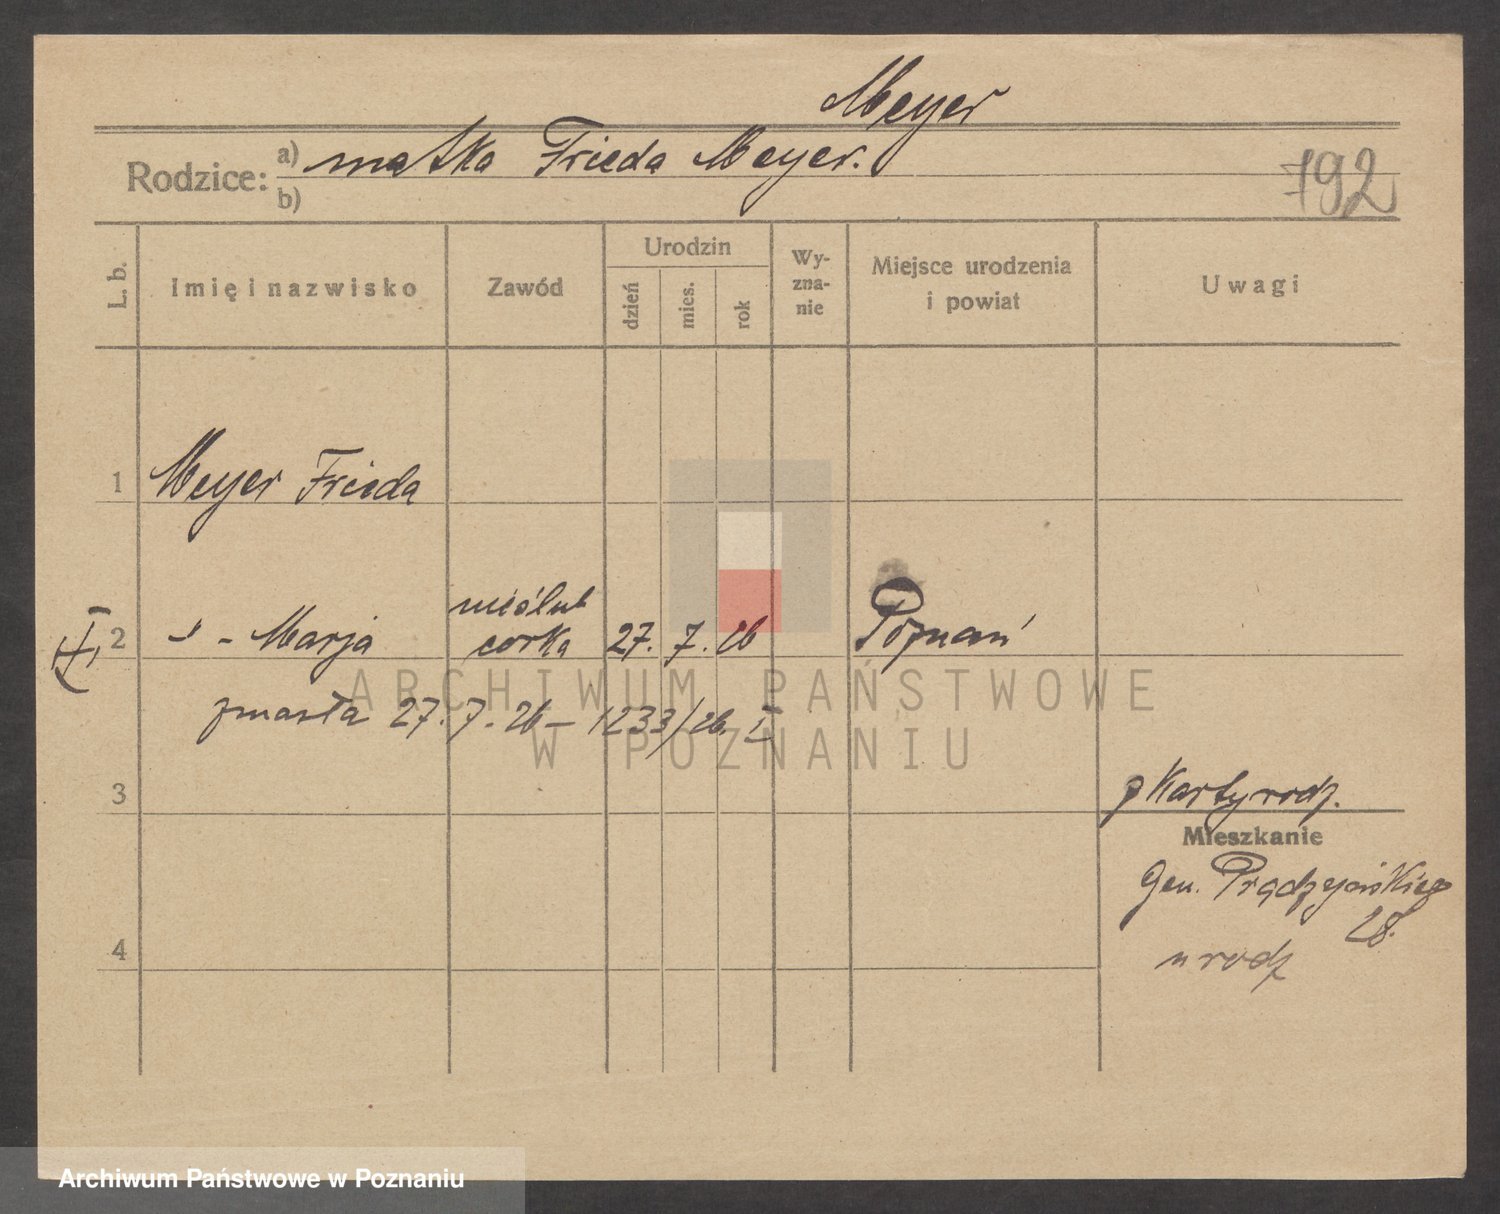 Meyer
Rodzice: a) matka Frieda Meyer.
b)
792
L. b.
Imię i nazwisko
Zawód
Urodzin
dzień
mies.
rok
Wy-
zna-
nie
Miejsce urodzenia
i powiat
Uwagi
1 Meyer Frieda
nieślub
2 " - Marja corka 27. 7. 26 Poznań
zmarła 27.7.26 – 1233/26. I
3
z Karty rodz.
Mieszkanie
Gen. Prądzyńskiego
28.
4
u rodz
ARCHIWUM PAŃSTWOWE
W POZNANIU
Archiwum Państwowe w Poznaniu